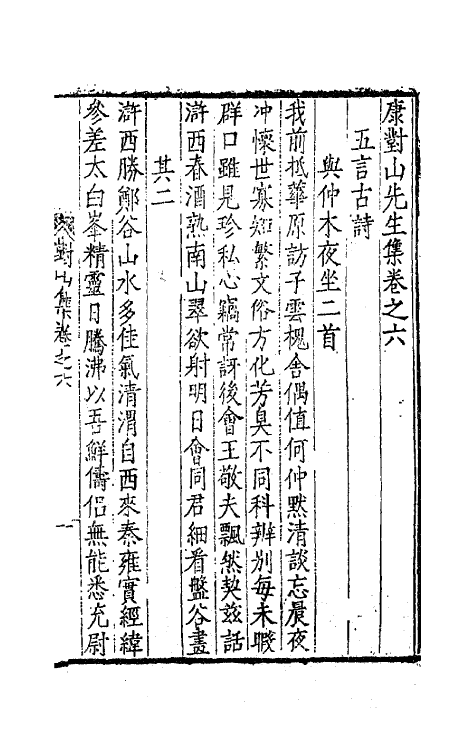 康對山先生集卷之六
五言古詩
與仲木夜坐二首
我前抵華原訪子雲槐舍偶值何仲默清談忘晨夜
冲懷世寡知繁文俗方化芳臭不同科辨别每未暇
群口雖見珍私心竊常訝後會王敬夫飄然契兹話
滸西春酒熟南山翠欲射明日會同君細看盤谷畫
其二
滸西勝鄭谷山水多佳氣清渭自西來秦雍實經緯
參差太白峯精靈日騰沸以吾鮮儔侣無能悉充尉
對山集卷之六
一